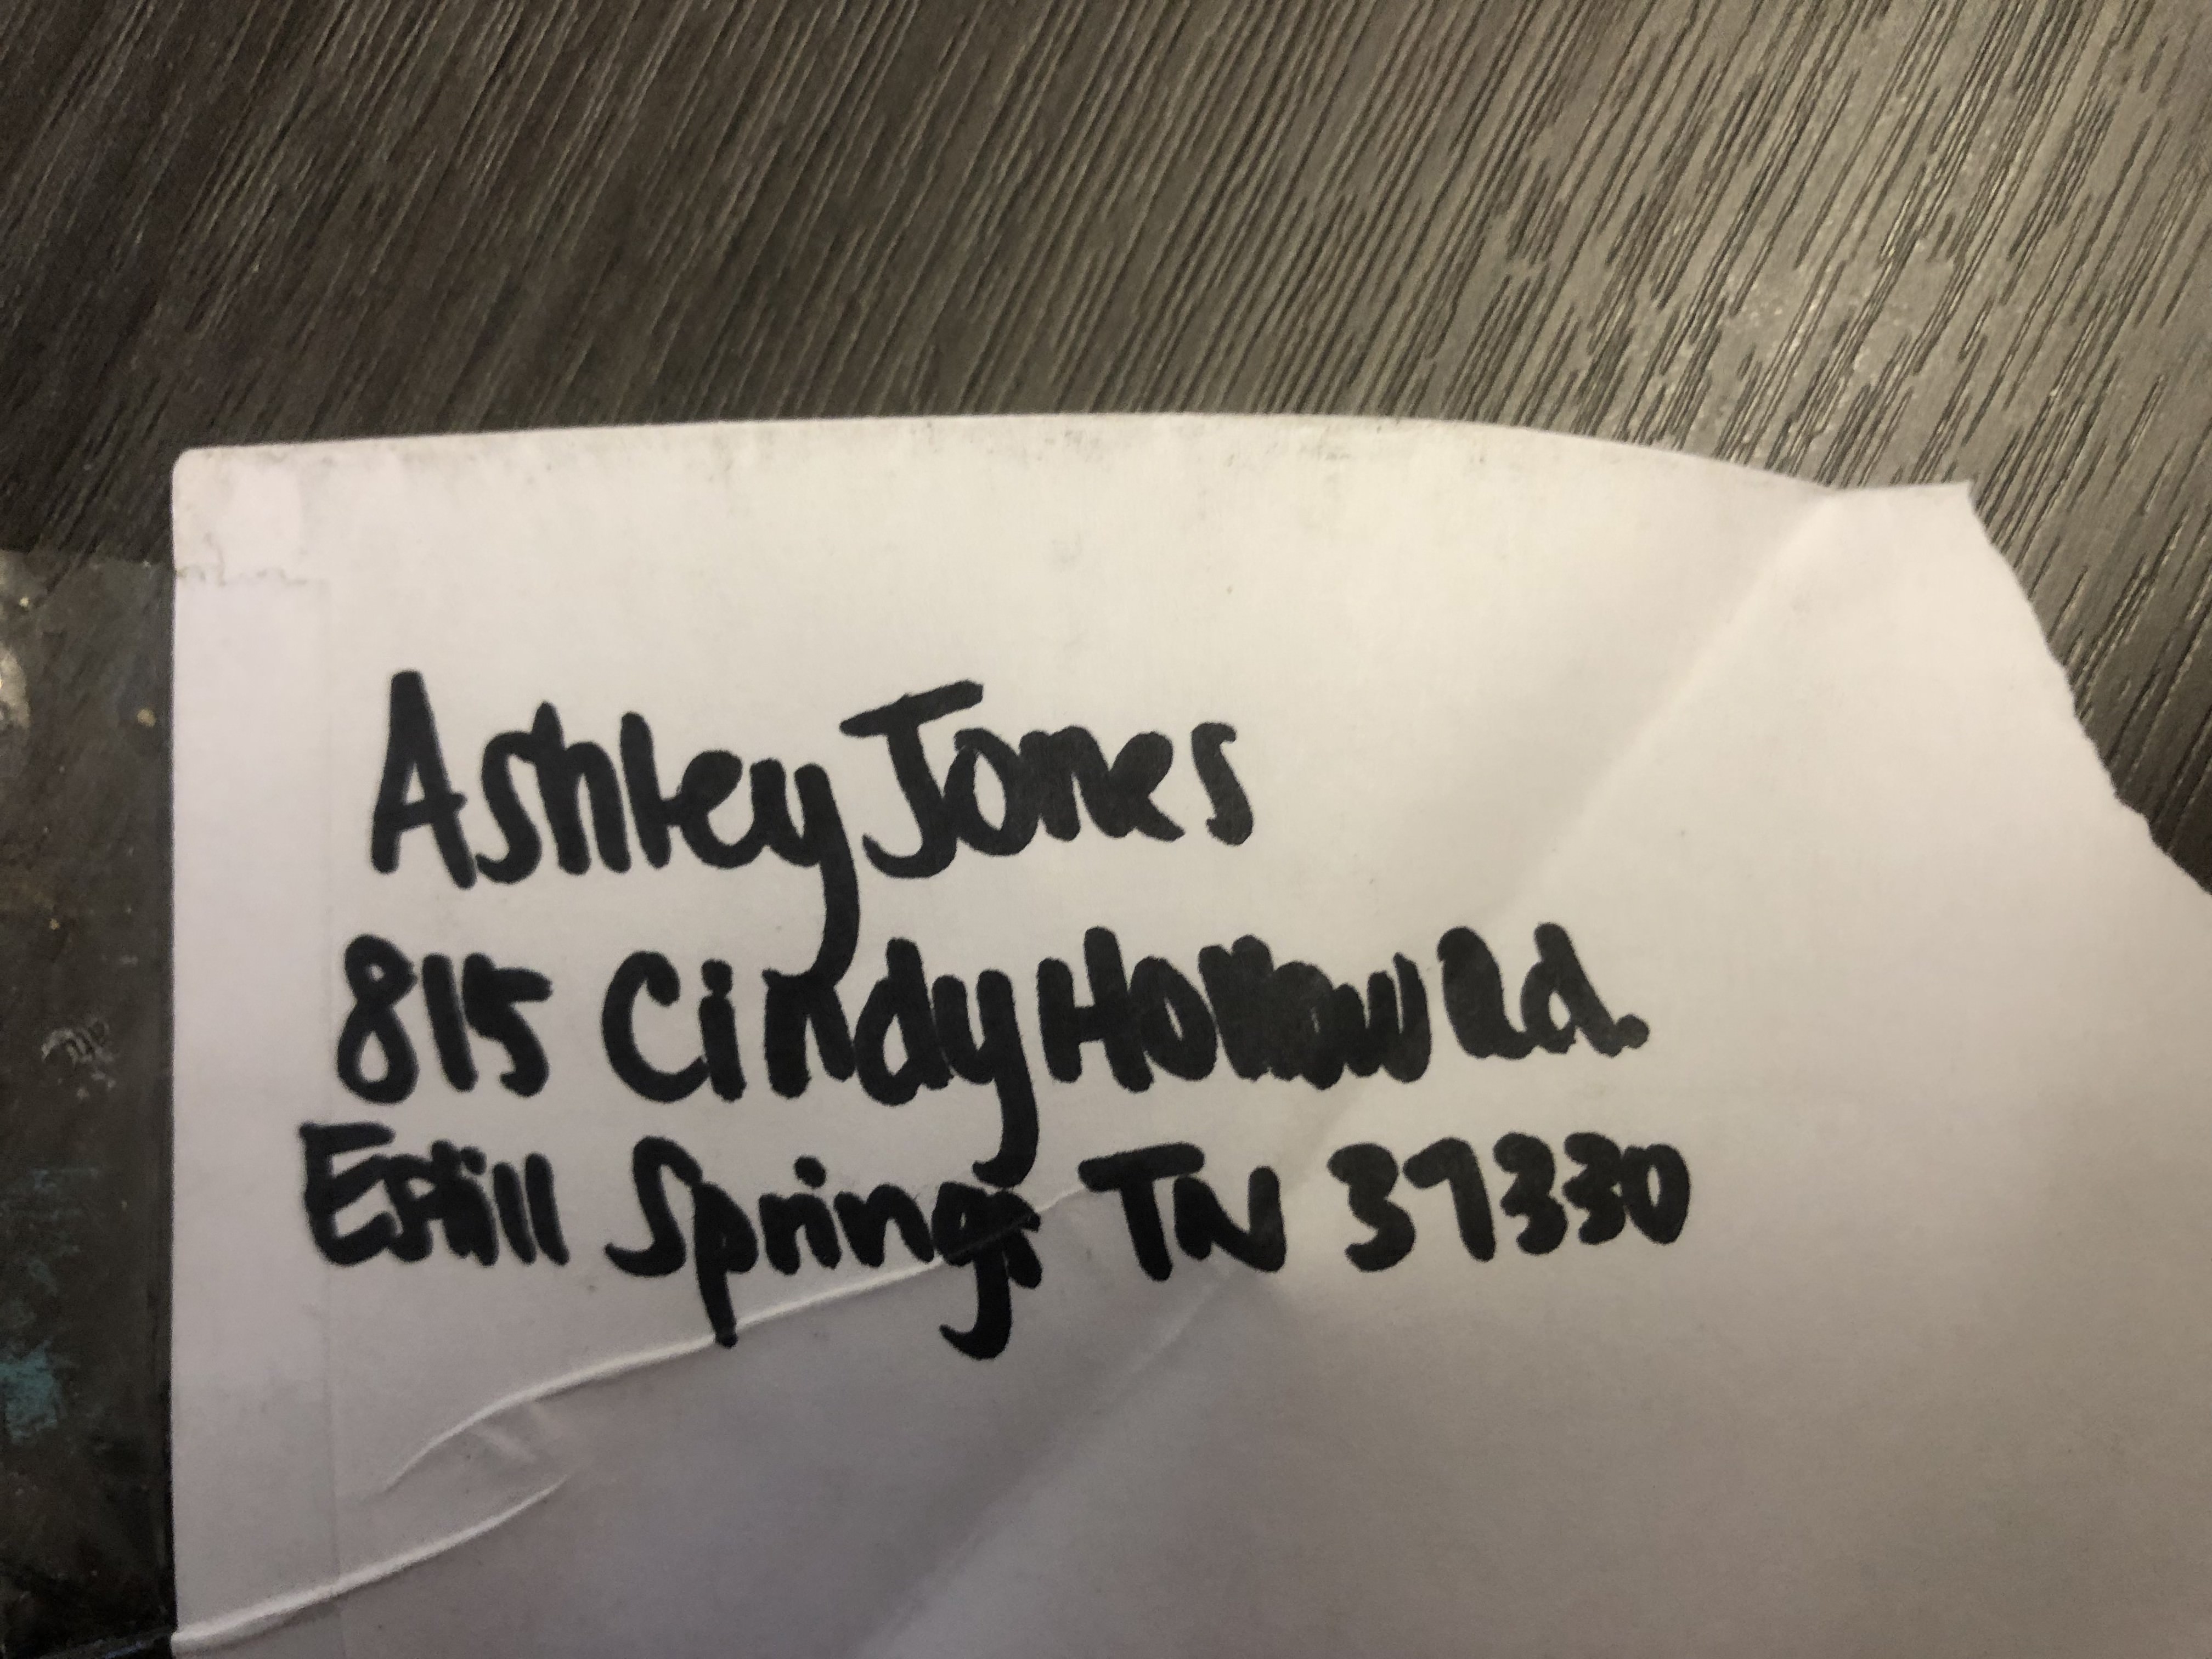 Ashley Jones
815 Cindy Hollow Rd.
Estill Spring TN 37330